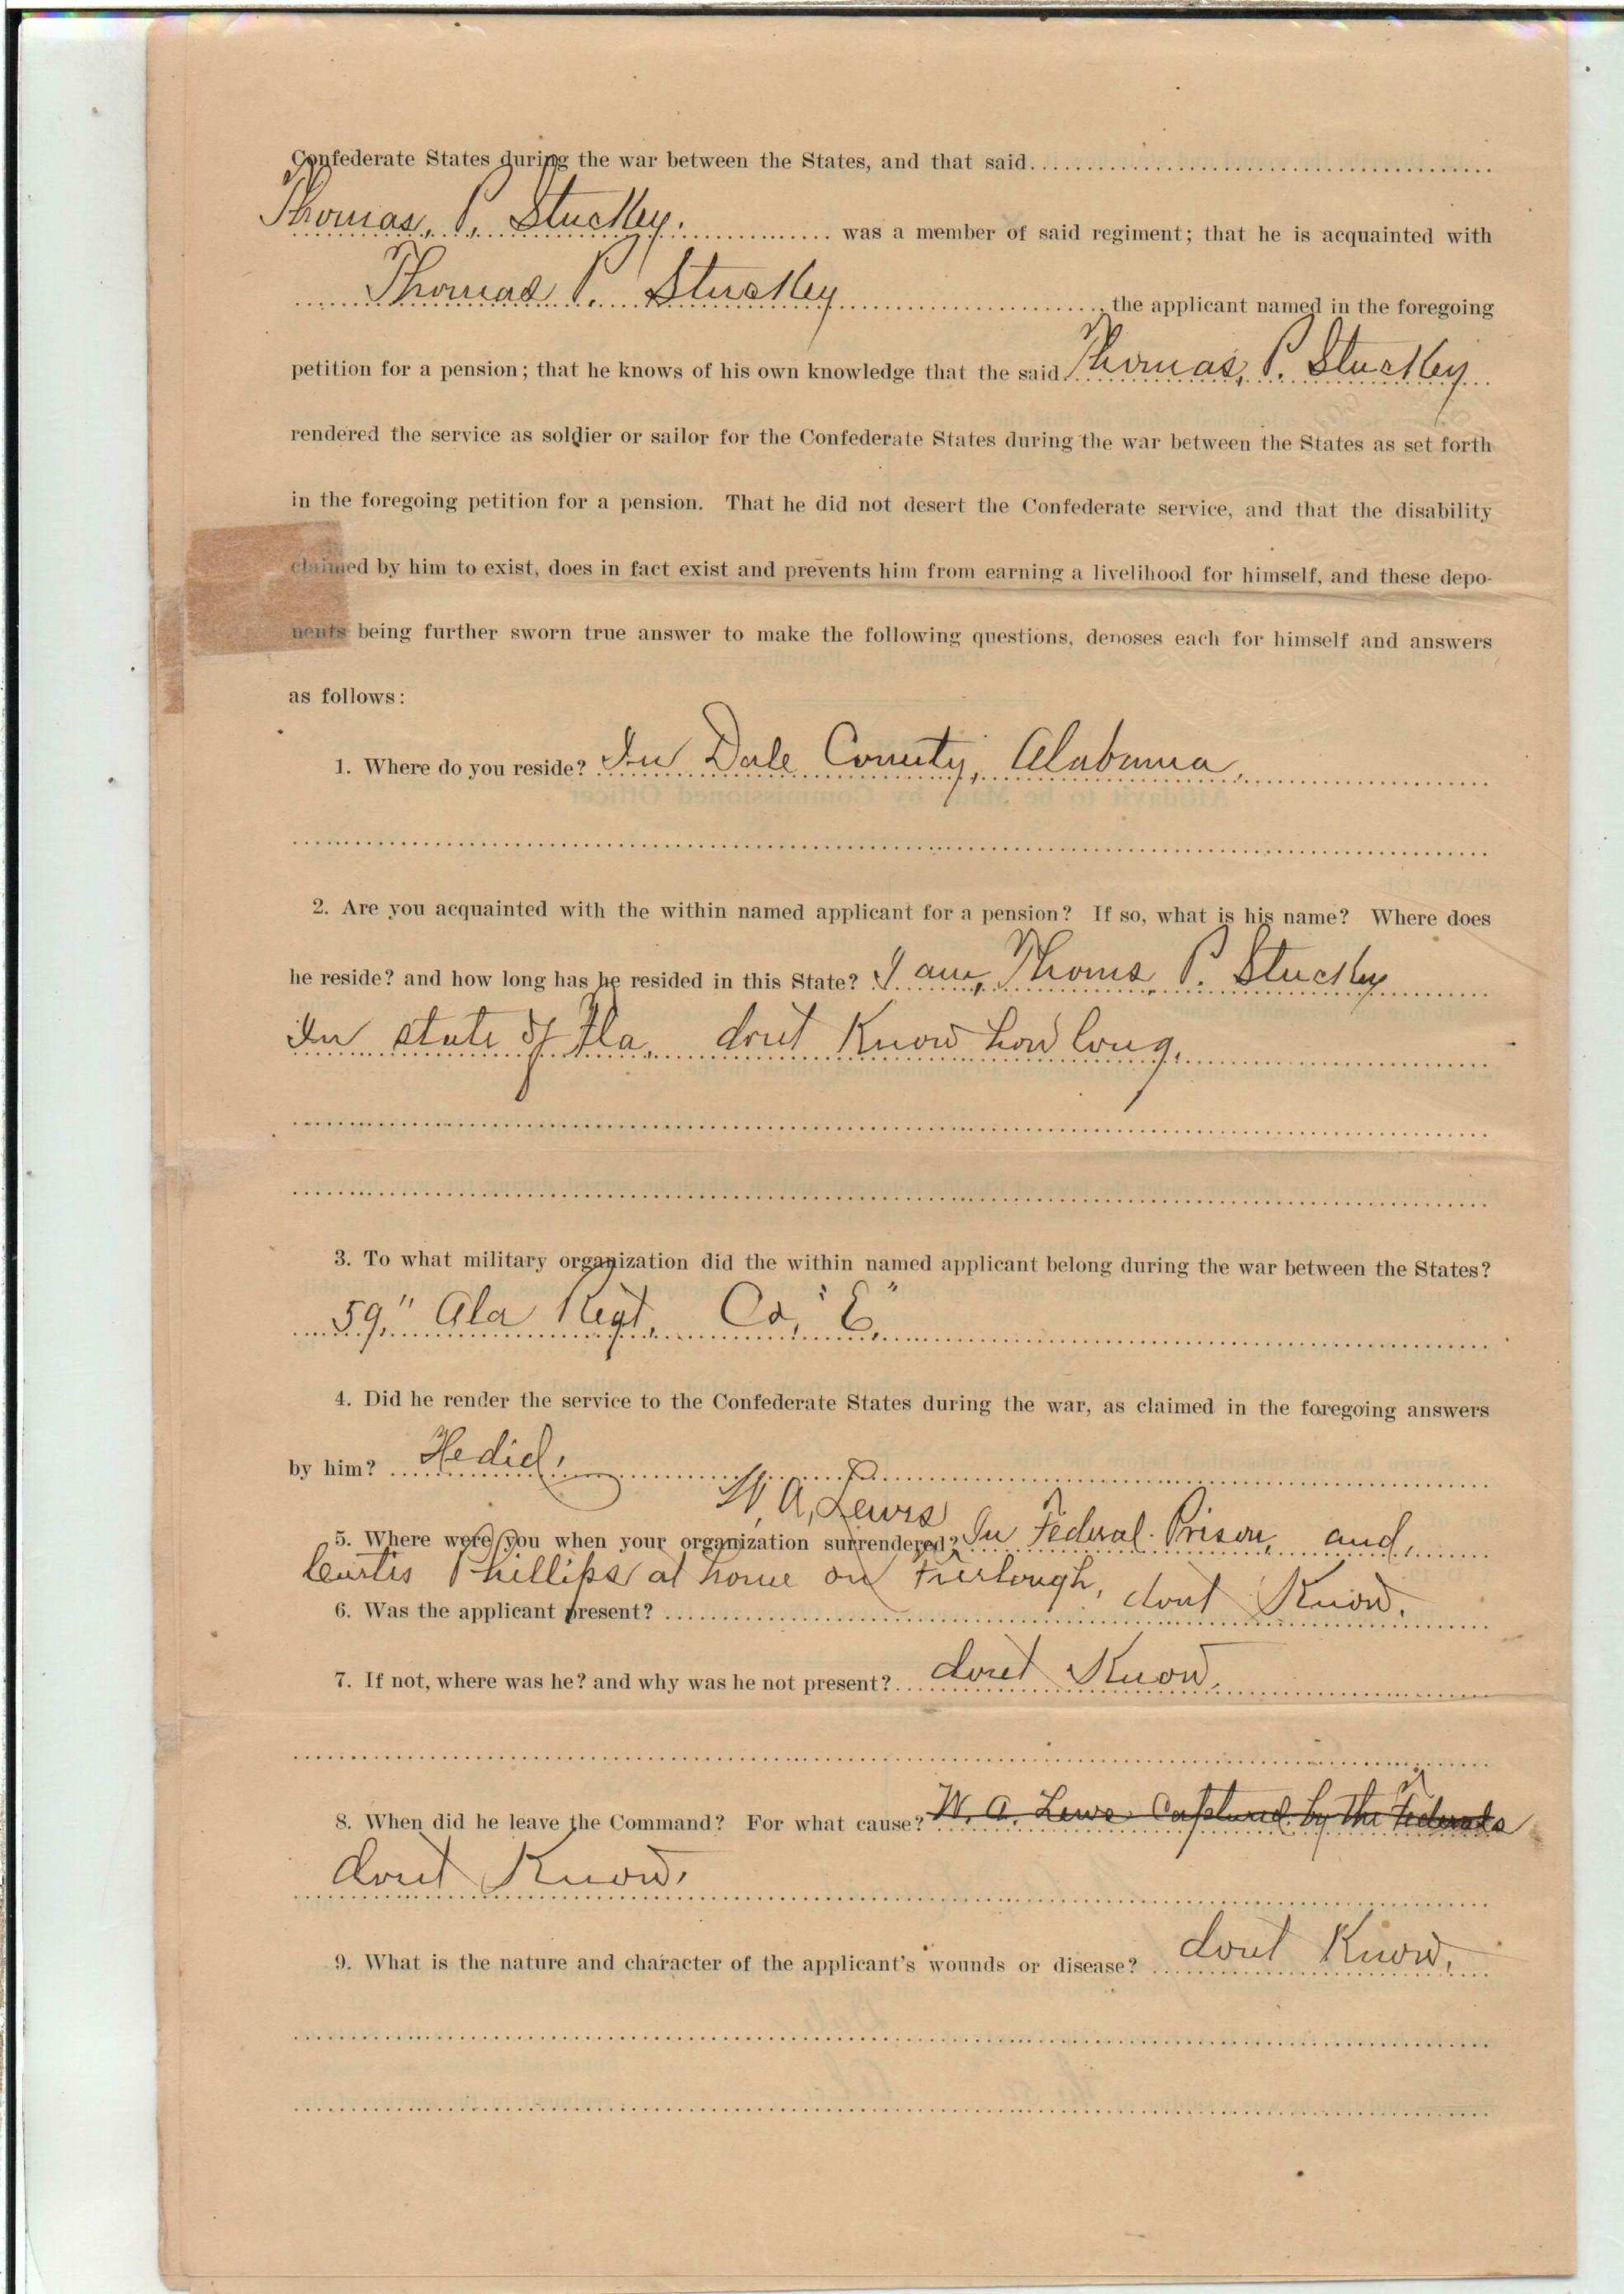 Confederate States during the war between the States, and that said
Thomas, P. Stuckey. was a member of said regiment; that he is acquainted with
Thomas P. Stuckey, the applicant named in the foregoing
petition for a pension; that he knows of his own knowledge that the said Thomas, P. Stuckey
rendered the service as soldier or sailor for the Confederate States during the war between the States as set forth
in the foregoing petition for a pension. That he did not desert the Confederate service, and that the disability
claimed by him to exist, does in fact exist and prevents him from earning a livelihood for himself, and these depo-
nents being further sworn true answer to make the following questions, denoses each for himself and answers
as follows:
1. Where do you reside? In Dale County, Alabama,
2. Are you acquainted with the within named applicant for a pension? If so, what is his name? Where does
he reside? and how long has he resided in this State? I am, Thoms, P. Stuckey
In state of Fla, dont Know how long,
3. To what military organization did the within named applicant belong during the war between the States?
59" Ala Regt, Co, "E"
4. Did he render the service to the Confederate States during the war, as claimed in the foregoing answers
by him? He did,
W, A, Lewis
5. Where were you when your organization surrendered? In Federal Prison, and,
Curtis Phillips at home on Furlough,
6. Was the applicant present? dont Know.
7. If not, where was he? and why was he not present? dont Know,
8. When did he leave the Command? For what cause? W. A. Lews Captured by the Federals
dont Know,
9. What is the nature and character of the applicant's wounds or disease? dont Know,